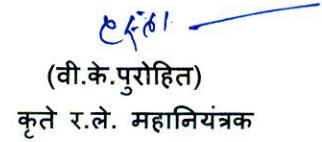 (वी.के.पुरोहित)
कृते र.ले. महानियंत्रक